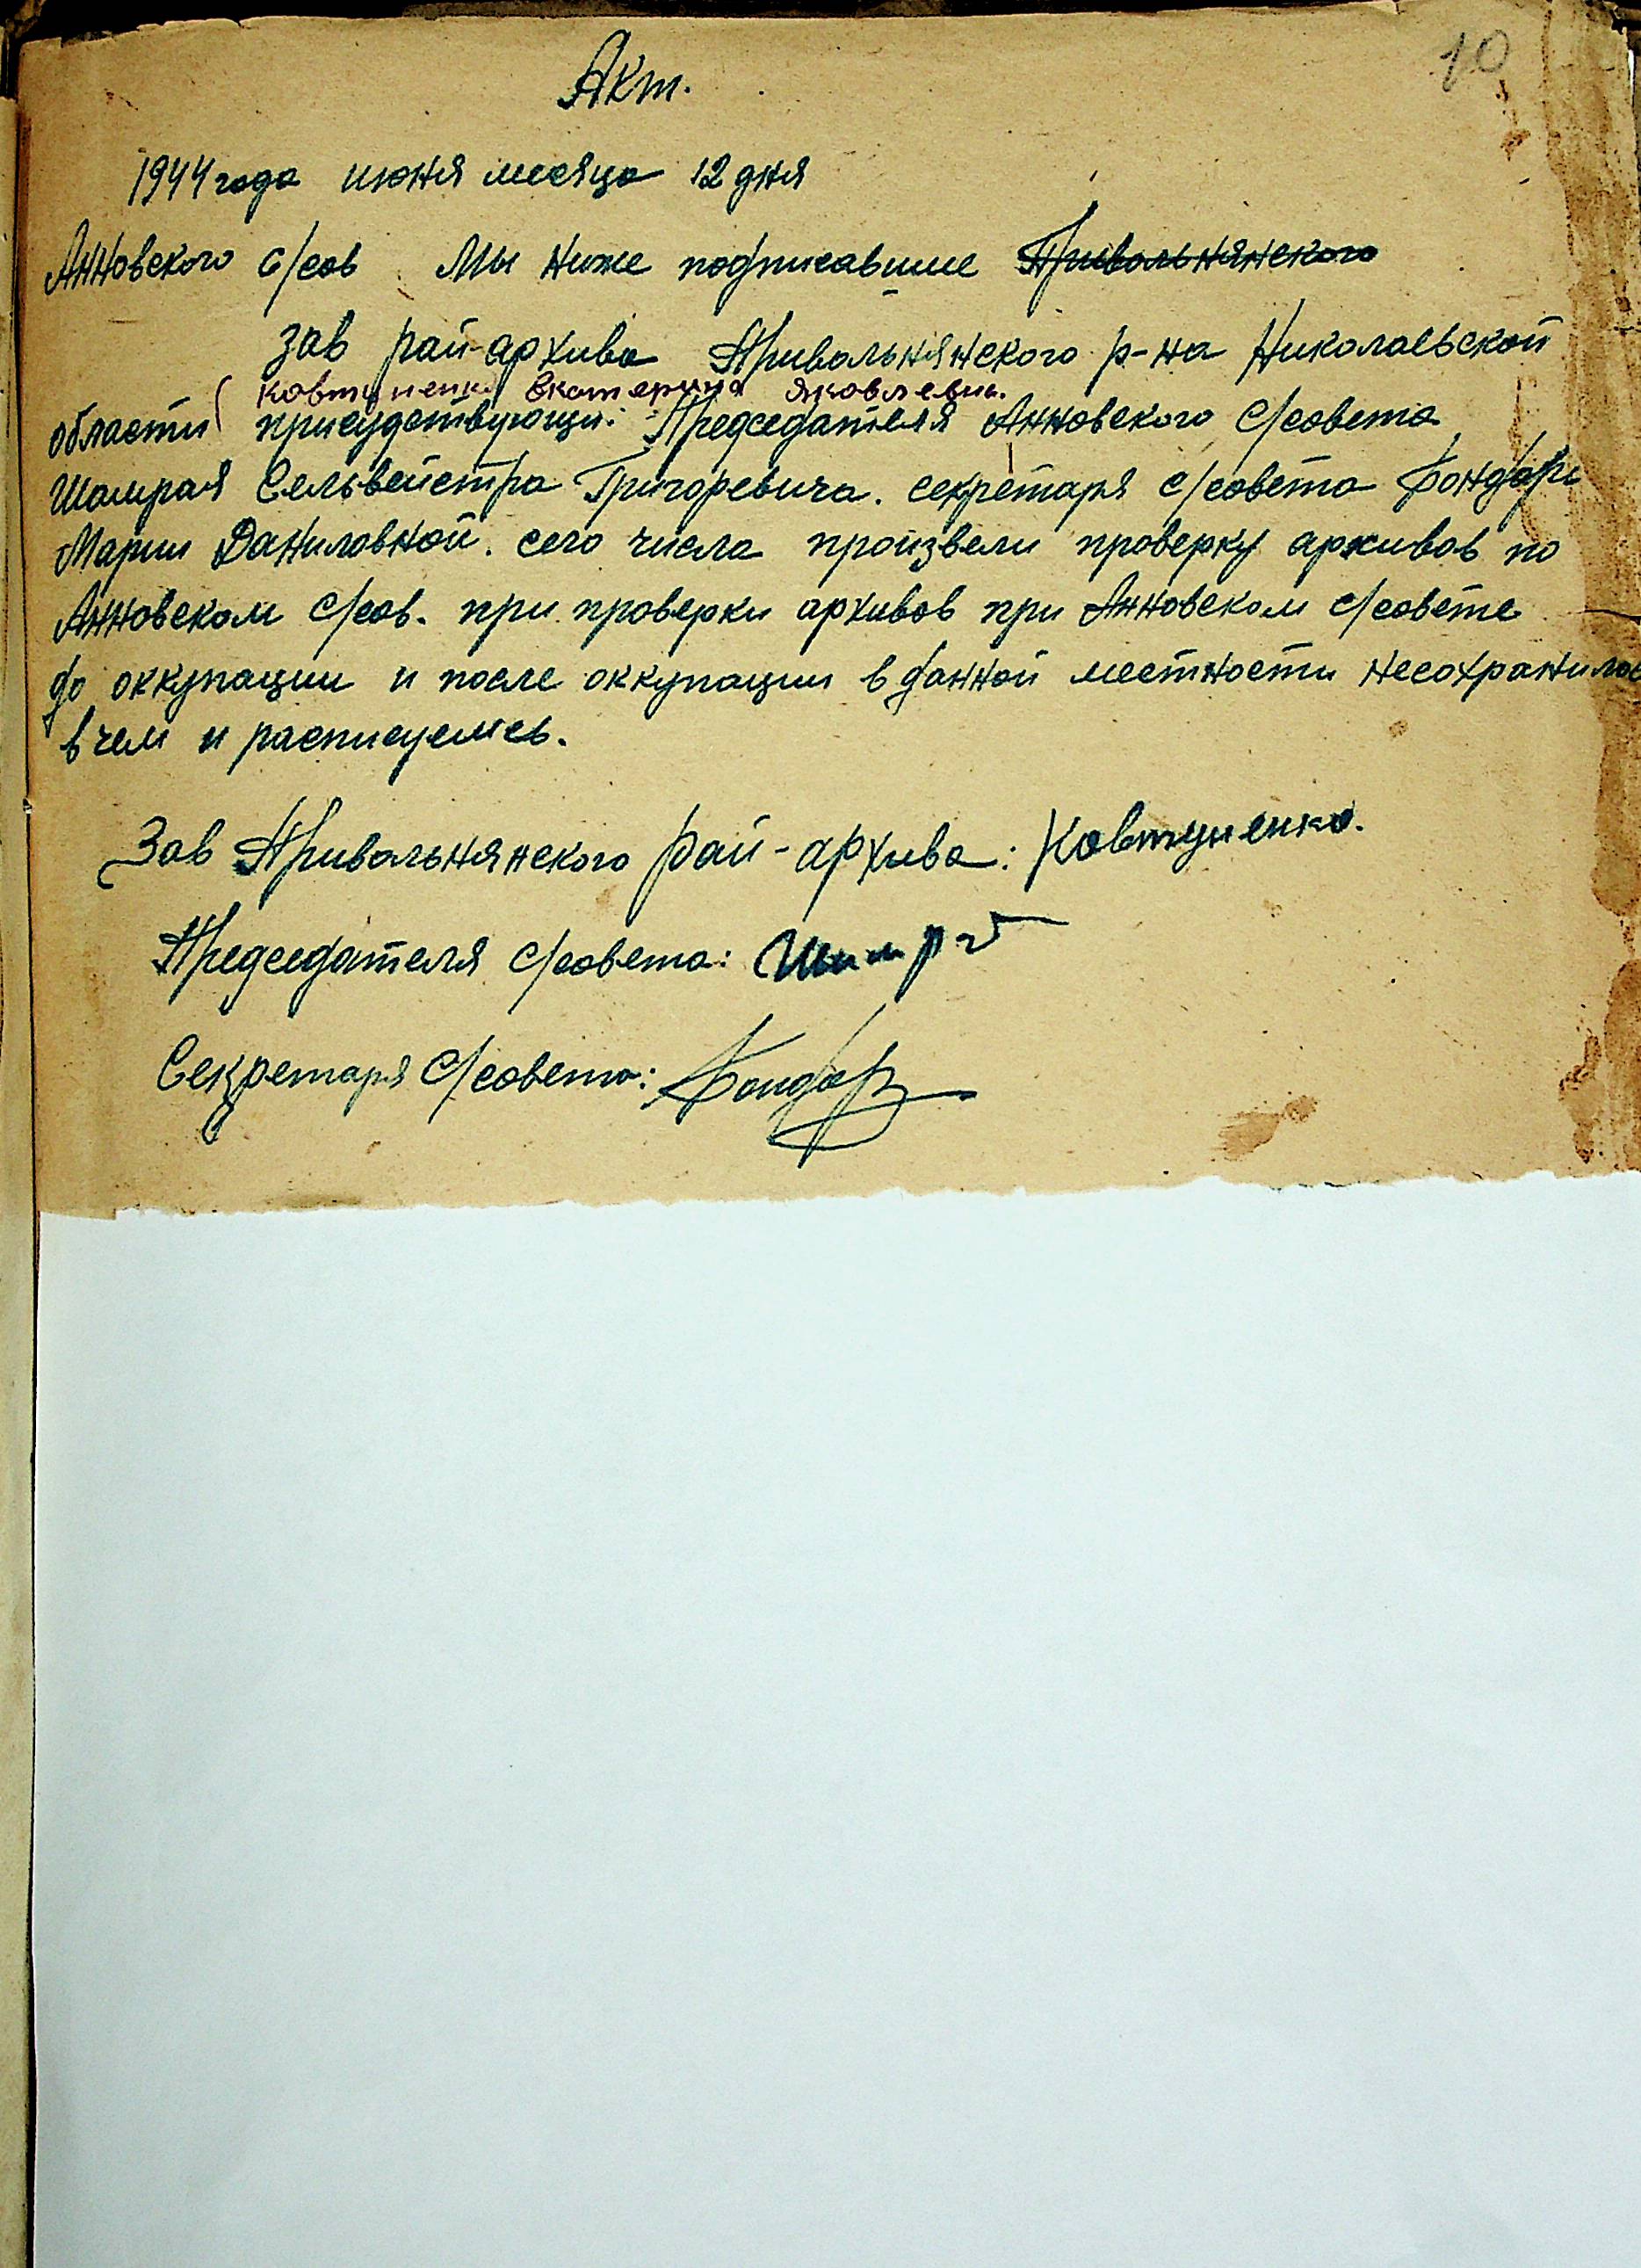 10
Акт.
1944 года июня месяца 12 дня
Анновского с/сов Мы ниже подписавшие Привольнянского
зав рай-архива Привольнянского р-на Николаевской
Ковтуненко Екатерина Яковлевна.
области присудствующи: Председателя Анновского с/совета
Шамрая Сельвейстра Григоревича. секретаря с/совета Бондарь
Марии Даниловной. сего числа произвели проверку архивов по
Анновском с/сов. при проверки архивов при Анновском с/совете
до оккупации и после оккупации в данной местности несохранилос
в чем и расписуемсь.
Зав Привольнянского рай-архива: Ковтуненко.
Председателя с/совета: Шамрай
Секретаря с/совета: Бондар